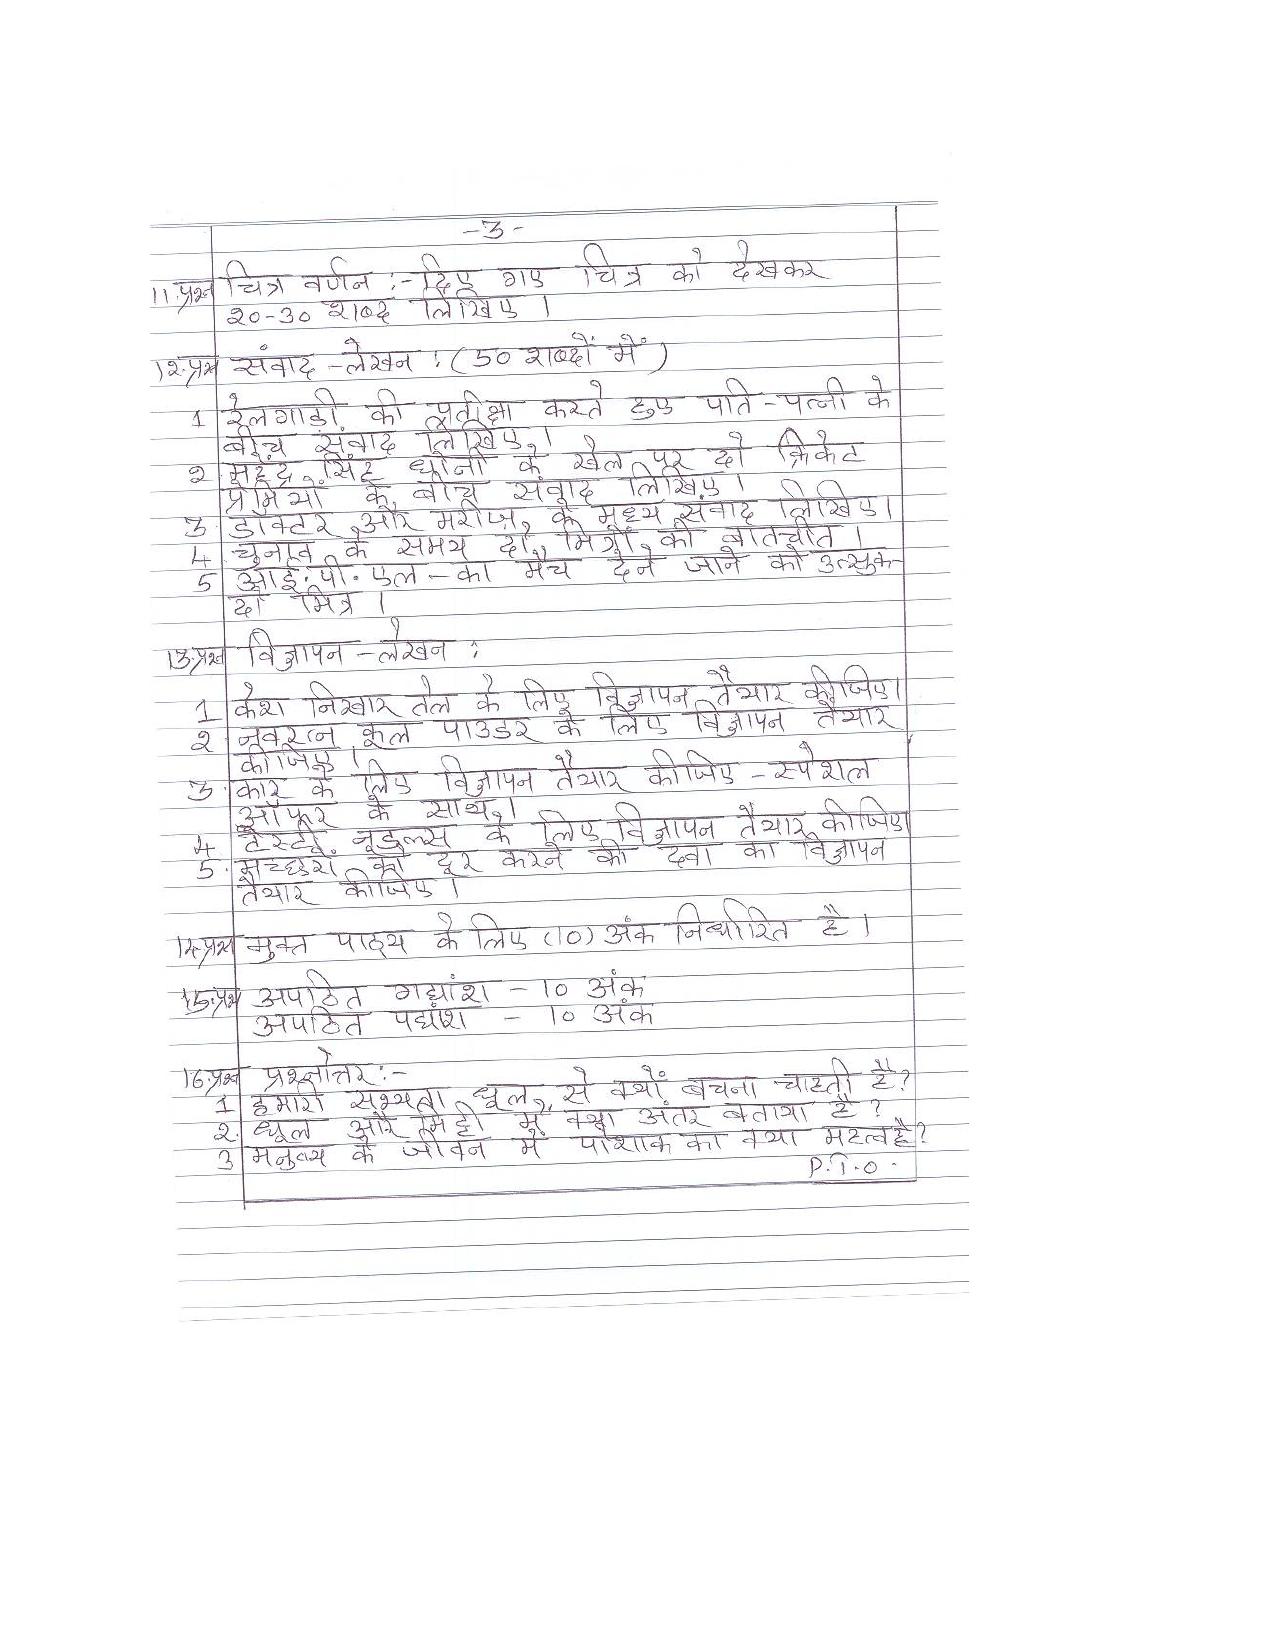 -3-
11.प्रश्न चित्र वर्णन :- दिए गए चित्र को देखकर
२०-३० शब्द लिखिए ।
1२.प्रश्न संवाद -लेखन : (50 शब्दों में)
1 रेलगाड़ी की प्रतीक्षा करते हुए पति -पत्नी के
बीच संवाद लिखिए ।
२ महेंद्र सिंह धोनी के खेल पर दो क्रिकेट
प्रेमियों के बीच संवाद लिखिए ।
3 डॉक्टर और मरीज़ के मध्य संवाद लिखिए ।
4 चुनाव के समय दो मित्रों की बातचीत ।
5 आई. पी. एल -का मैच देने जाने को उत्सुक-
दो मित्र ।
13.प्रश्न विज्ञापन -लेखन :
1 केश निखार तेल के लिए विज्ञापन तैयार कीजिए।
२ नवरत्न कूल पाउडर के लिए विज्ञापन तैयार
कीजिए ।
3. कार के लिए विज्ञापन तैयार कीजिए -स्पेशल
ऑफर के साथ ।
4. टेस्टी नूडल्स के लिए विज्ञापन तैयार कीजिए
5. मच्छरों को दूर करने की दवा का विज्ञापन
तैयार कीजिए ।
14.प्रश्न मुक्त पाठ्य के लिए (10) अंक निर्धारित है ।
15.प्रश्न अपठित गद्यांश - 10 अंक
अपठित पद्यांश - 10 अंक
16.प्रश्न प्रश्नोत्तर :-
1 हमारी सभ्यता धूल से क्यों बचना चाहती है ?
2. धूल और मिट्टी में क्या अंतर बताया है ?
3 मनुष्य के जीवन में पोशाक का क्या महत्व है ?
P.T.O.